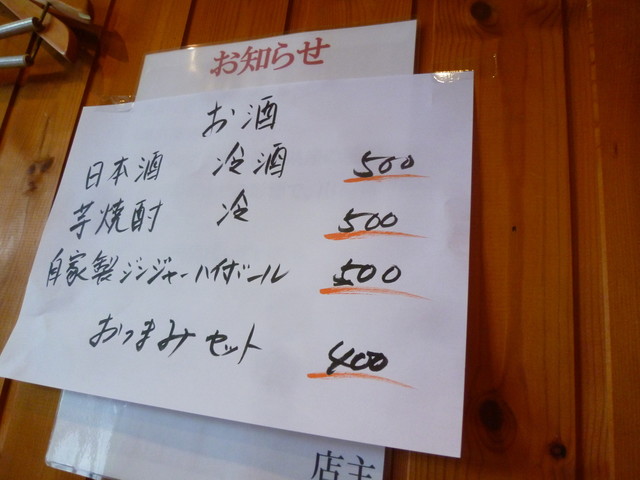 お知らせ
お酒
日本酒 冷酒 500
芋焼酎 冷 500
自家製ジンジャーハイボール 500
おつまみセット 400
店主